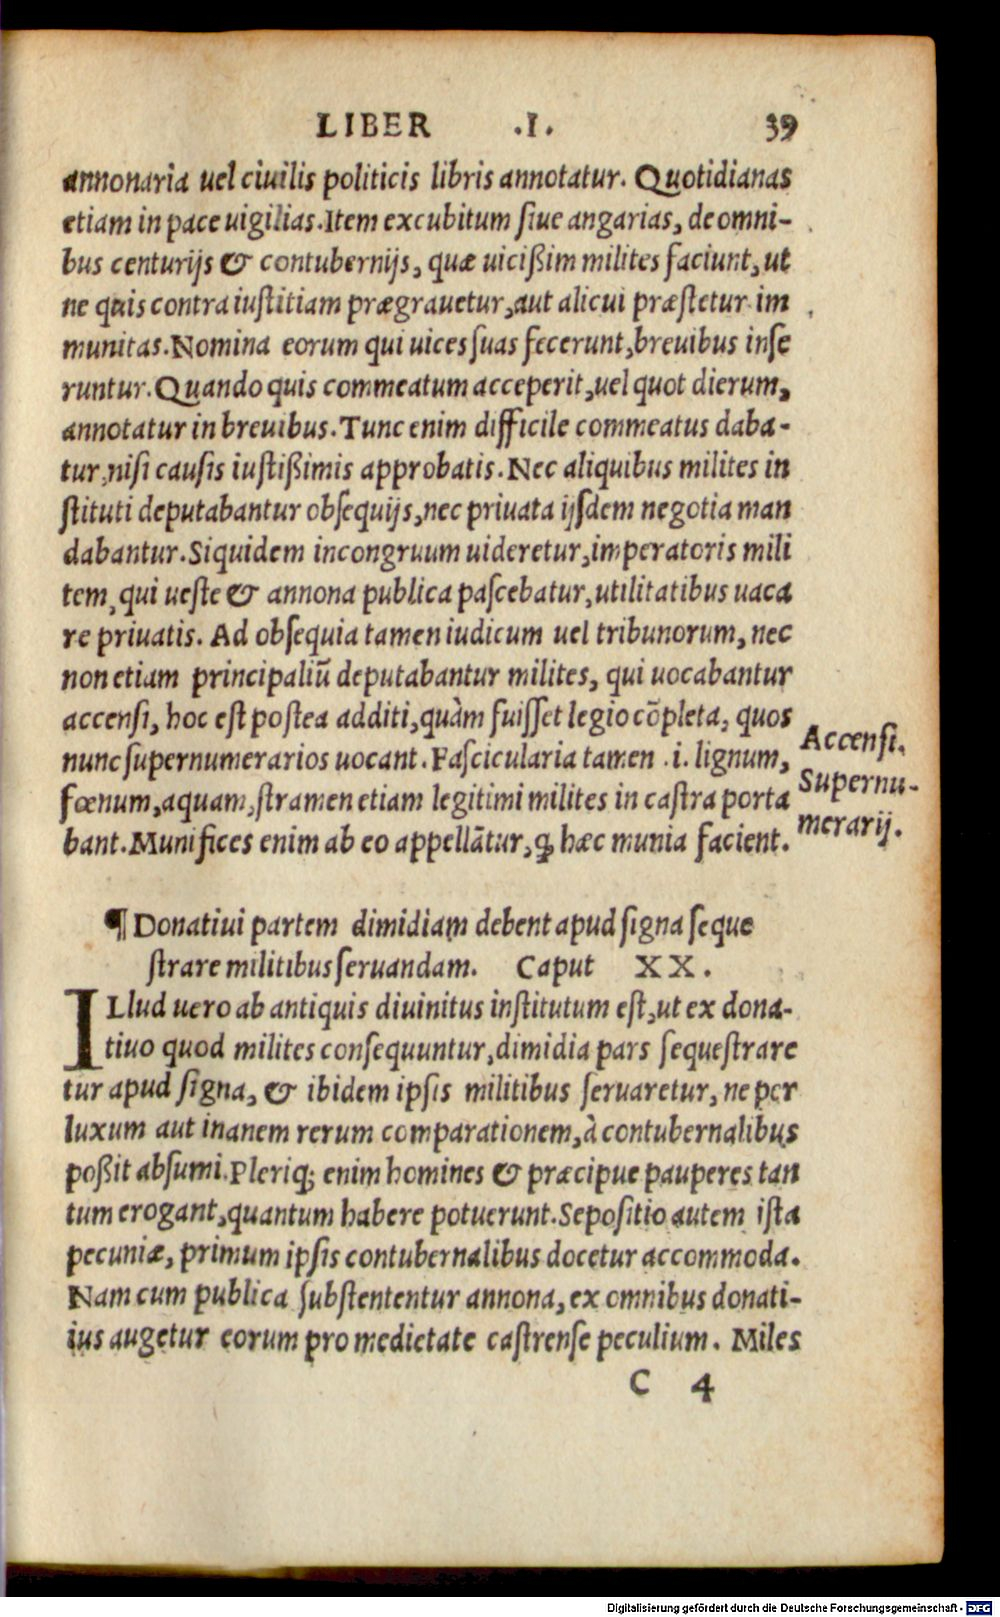 LIBER .I. 39
annonaria uel ciuilis politicis libris annotatur. Quotidianas
etiam in pace uigilias. Item excubitum ſiue angarias, de omni-
bus centurijs & contubernijs, quæ uicißim milites faciunt, ut
ne quis contra iuſtitiam prægrauetur, aut alicui præſtetur im
munitas. Nomina eorum qui uices ſuas fecerunt, breuibus inſe
runtur. Quando quis commeatum acceperit, uel quot dierum,
annotatur in breuibus. Tunc enim difficile commeatus daba-
tur, niſi cauſis iuſtißimis approbatis. Nec aliquibus milites in
ſtituti deputabantur obſequijs, nec priuata ijſdem negotia man
dabantur. Siquidem incongruum uideretur, imperatoris mili
tem, qui ueſte & annona publica paſcebatur, utilitatibus uaca
re priuatis. Ad obſequia tamen iudicum uel tribunorum, nec
non etiam principaliũ deputabantur milites, qui uocabantur
accenſi, hoc eſt poſtea additi, quàm fuiſſet legio cõpleta, quos
nunc ſupernumerarios uocant. Faſcicularia tamen .i. lignum,
fœnum, aquam, ſtramen etiam legitimi milites in caſtra porta
bant. Munifices enim ab eo appellãtur, ꝙ hæc munia facient.
Accenſi.
Supernu-
merarij.
¶ Donatiui partem dimidiam debent apud ſigna ſeque
ſtrare militibus ſeruandam. Caput XX.
ILlud uero ab antiquis diuinitus inſtitutum eſt, ut ex dona-
tiuo quod milites conſequuntur, dimidia pars ſequeſtrare
tur apud ſigna, & ibidem ipſis militibus ſeruaretur, ne per
luxum aut inanem rerum comparationem, à contubernalibus
poßit abſumi. Pleriq; enim homines & præcipue pauperes tan
tum erogant, quantum habere potuerunt. Sepoſitio autem iſta
pecuniæ, primum ipſis contubernalibus docetur accommoda.
Nam cum publica ſubſtententur annona, ex omnibus donati-
ius augetur eorum pro medietate caſtrenſe peculium. Miles
C 4
Digitalisierung gefördert durch die Deutsche Forschungsgemeinschaft - DFG